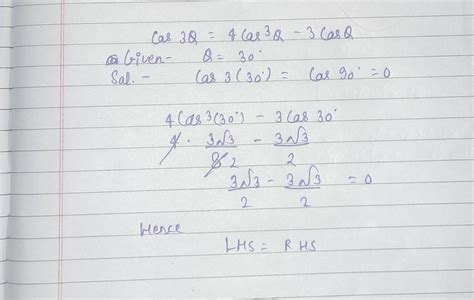 Cos 3Q = 4 Cos³Q - 3 CosQ
Given- Q = 30°
Sol. - Cos 3(30°) = Cos 90° = 0
4 Cos³(30°) - 3 Cos 30°
4 · 3√3/8 2 - 3√3/2
3√3/2 - 3√3/2 = 0
Hence
LHS = RHS